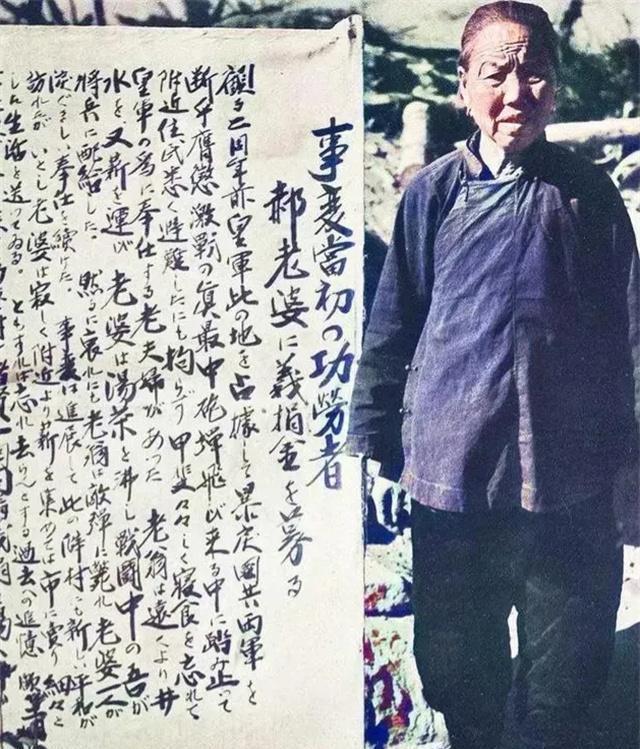 事変當初の功勞者
郝老婆に義捐金を募る
顧る二周年前皇軍此の地を占據して暴戻國共両軍と
断乎膺懲激戰の眞最中砲弾飛び来る中に踏み止って
附近住民悉く避難したにも拘らず甲斐々々しく寝食を忘れて
皇軍の為に奉仕する老夫婦があった 老翁は遠くより井
水を又薪を運び 老婆は湯茶を沸し戰闘中の吾が
将兵に配給した、然るに哀れにも老翁は敵弾に斃れ老婆一人が
淚ぐましい奉仕を続けた、事変は進展して此の隣村にも新しい平和が
訪れたが いとし老婆は寂しく附近より薪を集めては市に賣り細々と
した生活を送ってゐる。ともすれば忘れ去らんとする過去への追憶